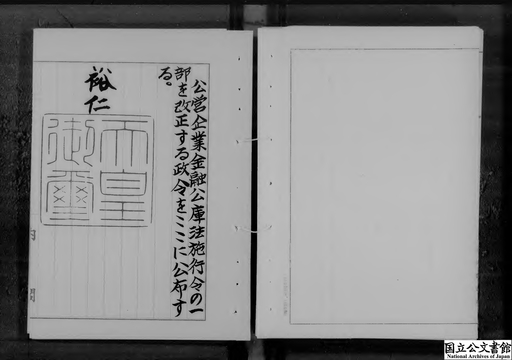 公営企業金融公庫法施行令の一
部を改正する政令をここに公布す
る。
裕仁
天皇
御璽
国立公文書館
National Archives of Japan